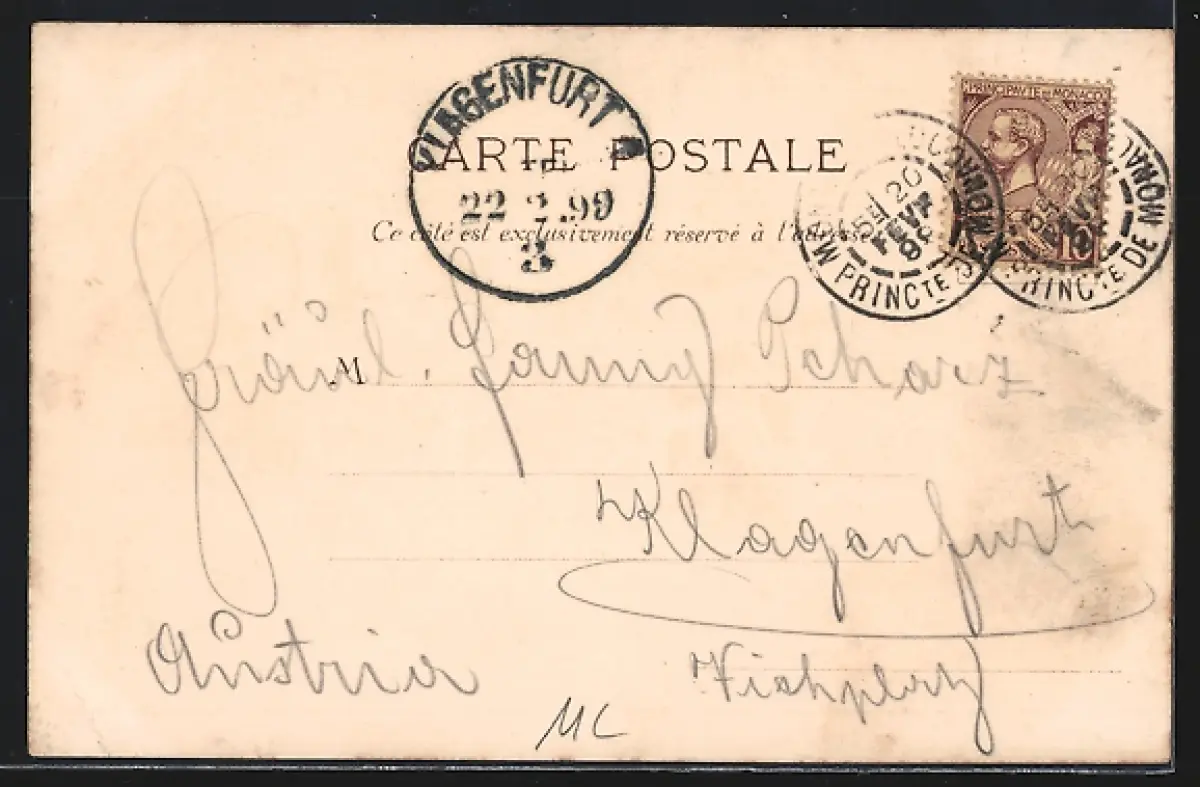 KLAGENFURT
CARTE POSTALE
22 2.99
3
Ce côté est exclusivement réservé à l'adresse
PRINCIPAUTÉ DE MONACO
20
FEVR
PRINCTE DE MONACO
PRINCTE DE MONACO
M
Fräul. Fanny Scharz
Klagenfurt
Austria
Viehplatz
MC